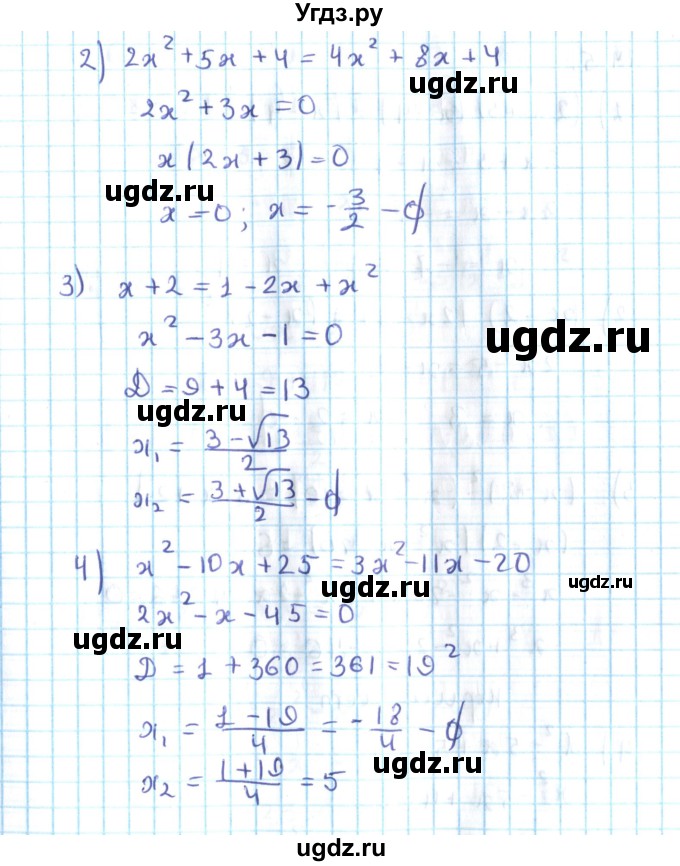 Угдз.ру
2) 2x² + 5x + 4 = 4x² + 8x + 4
ugdz.ru
2x² + 3x = 0
x(2x + 3) = 0
ugdz.ru
x = 0; x = -3/2 - ∅
3) x + 2 = 1 - 2x + x²
x² - 3x - 1 = 0
ugdz.ru
D = 9 + 4 = 13
ugdz.ru
x₁ = (3 - √13)/2
x₂ = (3 + √13)/2 - ∅
4) x² - 10x + 25 = 3x² - 11x - 20
ugdz.ru ugdz.ru
2x² - x - 45 = 0
ugdz.ru
D = 1 + 360 = 361 = 19²
x₁ = (1 - 19)/4 = -18/4 - ∅
ugdz.ru
x₂ = (1 + 19)/4 = 5
ugdz.ru